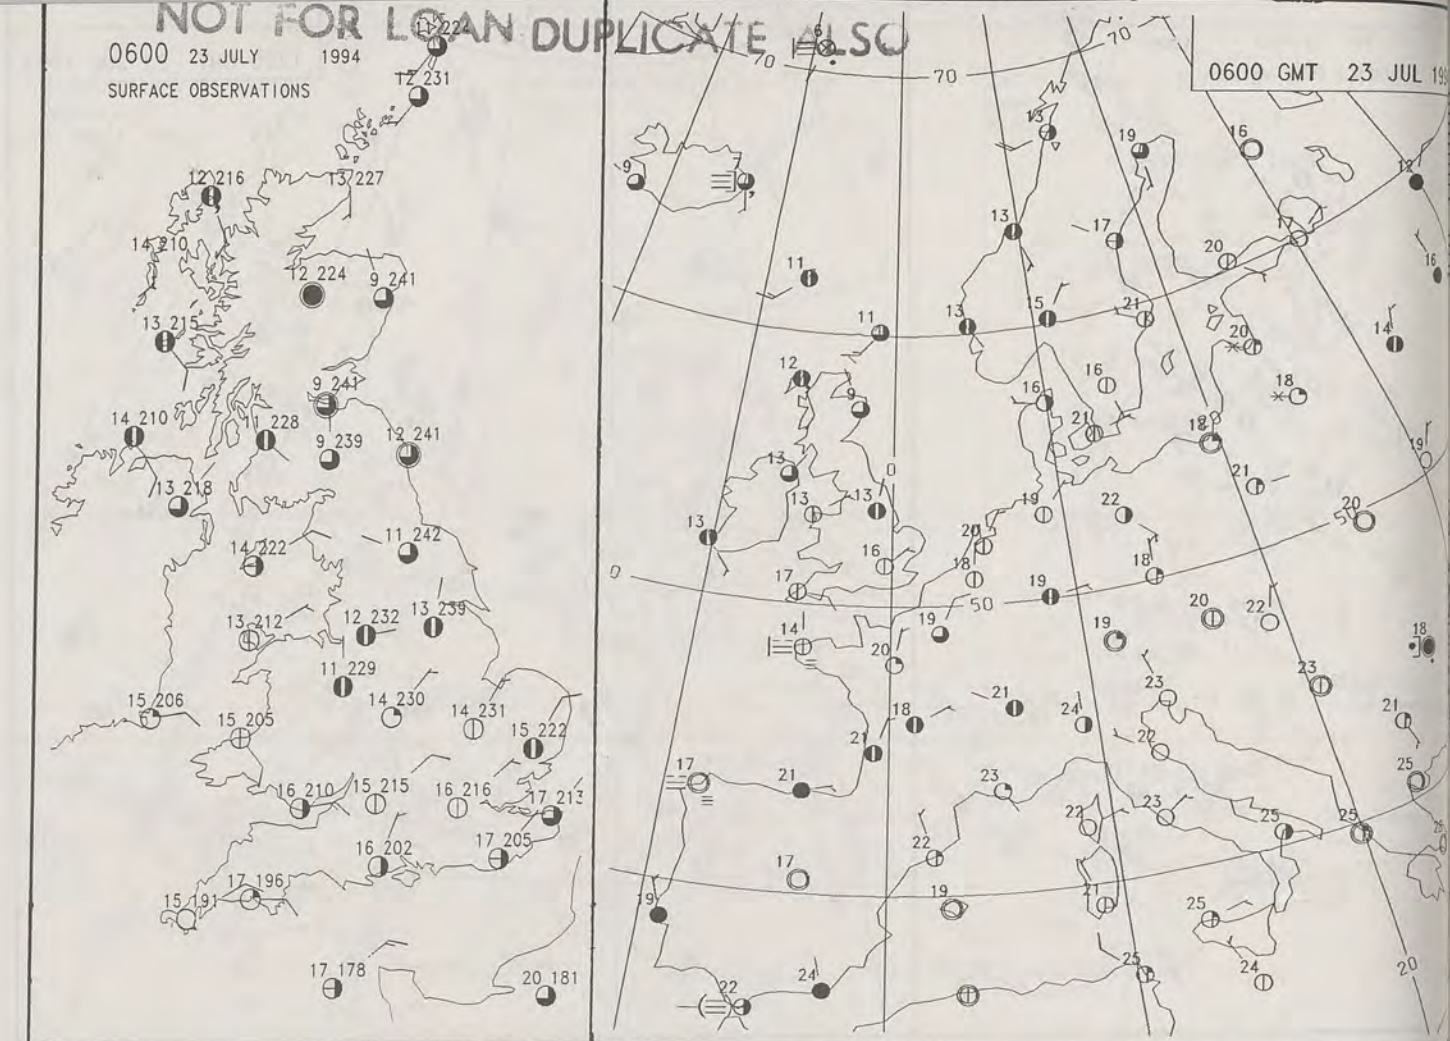 NOT FOR LOAN DUPLICATE ALSO
0600 23 JULY 1994
SURFACE OBSERVATIONS
11 224
12 231
12 216
13 227
14 210
12 224
9 241
13 215
9 241
14 210
11 228
9 239
12 241
13 218
14 222
11 242
13 212
12 232
13 239
11 229
15 206
14 230
14 231
15 205
15 222
16 210
15 215
16 216
17 213
16 202
17 205
15 191
17 196
17 178
20 181
0600 GMT 23 JUL
6
70
70
70
13
19
16
12
9
9
13
17
20
17
16
11
11
13
15
21
20
14
12
9
16
16
21
18
18
19
13
0
13
13
19
22
21
20
50
13
16
20
18
17
0
50
19
18
20
22
14
20
19
19
18
23
23
21
18
21
24
21
22
17
21
23
22
23
25
25
25
22
17
19
19
21
25
22
24
25
24
20